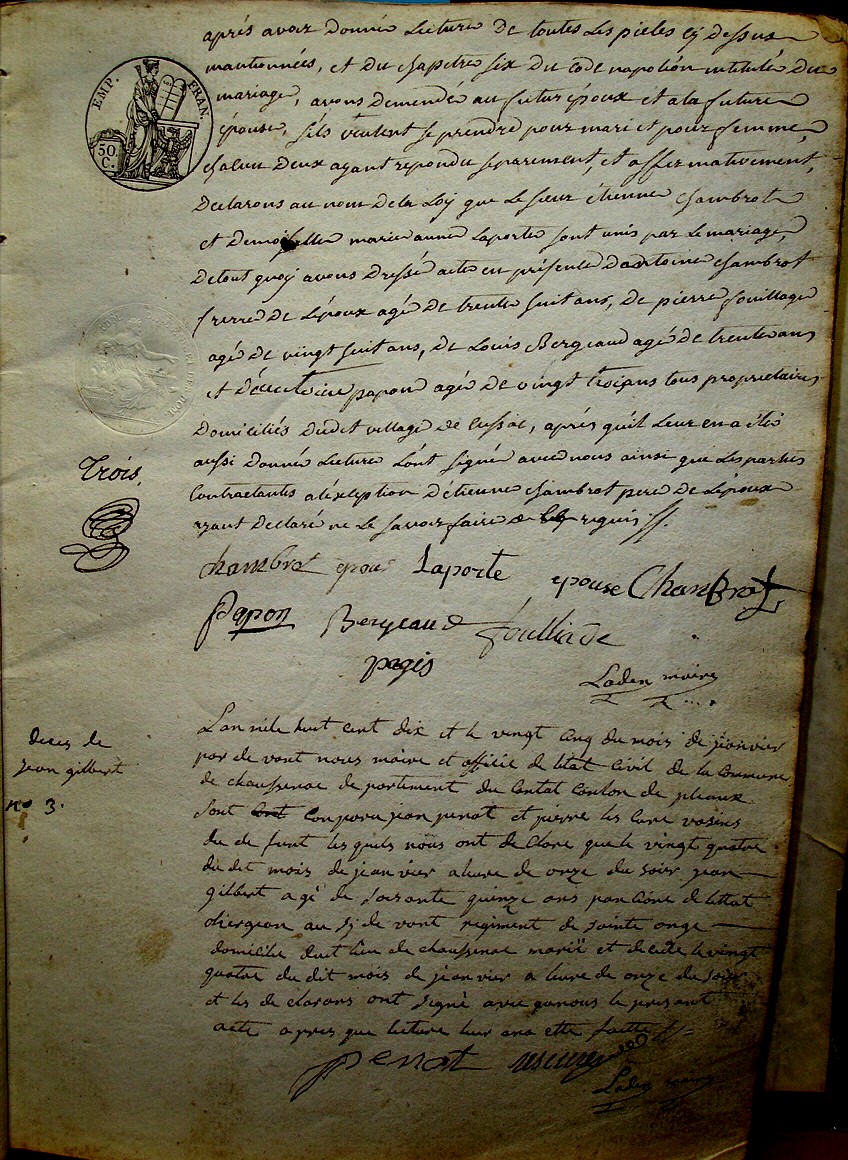 EMP. FRAN.
50. C.
après avoir donné Lecture de toutes Les pieces cy dessus
mantionnées, et du chapitre six du code napoléon intitulé du
mariage, avons demendé au futur époux et a la future
épouse, s'ils veulent se prendre pour mari et pour femme,
chacun deux ayant repondu séparement, et affirmativement,
Declarons au nom de la Loy que Le sieur étienne chambrot
et Demoiselle marie anne Laporte sont unis par Le mariage,
De tout quoy avons Dressé acte en présence D'antoine chambrot
frerre De L'époux agé de trente huit ans, De pierre fouilliade
agé De vingt huit ans, De Louis Bergeaud agé de trente ans
et papon agé De vingt trois ans tous propriétaires
Domiciliés Dudit village de Cussac, après qu'il Leur en a été
aussi Donné Lecture L'ont signé avec nous ainsi que Les parties
Contractantes a l'éxeption D'étienne chambrot pere De L'époux
ayant Declaré ne Le savoir faire de requis
Trois.
chambrot epou Laporte epouse Chambrot
Papon Bergeaud foulliade
pagis
Laden maire
deces de
jean gilbert
no 3.
Lan mile huit cent dix et le vingt cinq du mois de jeanvier
par de vant nous maire et officie de letat Civil de la commune
de chaussenac de partement du Cantal Canton de pleaux
sont conparu jean penot et pierre les cure voisins
du de funt les quels nous ont de clare que le vingt quatre
du dit mois de jeanvier a lure de onze du soir jean
gilbert a gé de soisante quinze ans de lettat
au de vant regiment de sainte onge
domicilie du lieu de chaussenac marié et decede le vingt
quatre du dit mois de jeanvier a lure de onze du soir
et les de clarans ont signé avec que nous le presant
acte apres que lecture leur ana ette faitte
penot rescure
Laden maire